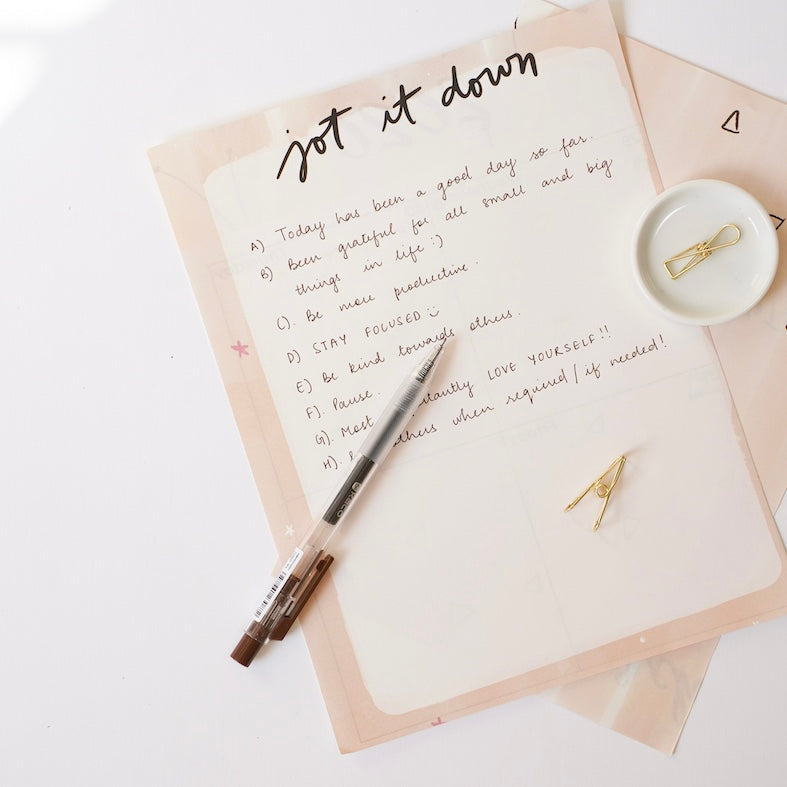 jot it down
A) Today has been a good day so far.
B) Been grateful for all small and big
things in life :)
C). Be more productive.
D) STAY FOCUSED
E) Be kind towards others.
F). Pause.
G). Most LOVE YOURSELF!!
H). others when required/if needed!
KACO